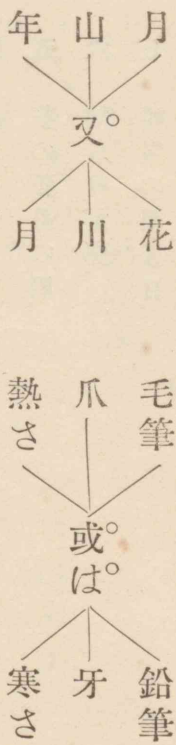 月 山 年
又
花 川 月
毛筆 爪 熱さ
或は
鉛筆 牙 寒さ